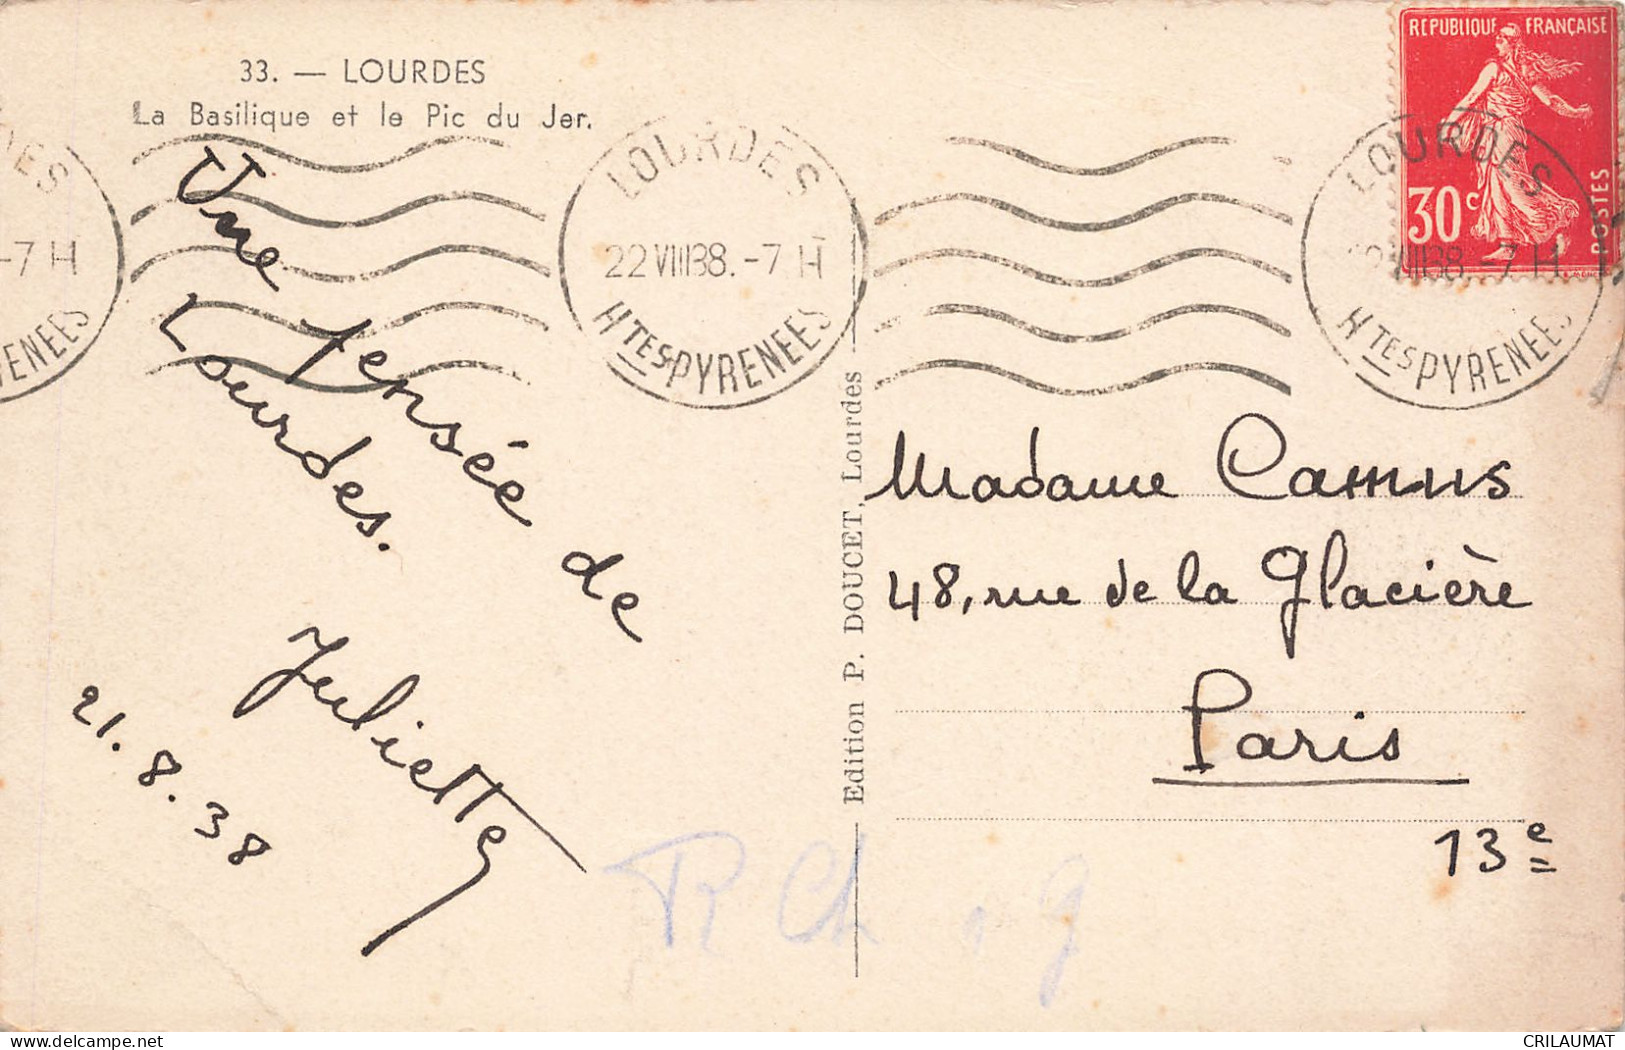 33. — LOURDES
La Basilique et le Pic du Jer.
Une pensée de
Lourdes.
Juliette
21.8.38
LOURDES
22 VIII 38. -7 H
HTES PYRENEES
-7 H
REPUBLIQUE FRANÇAISE
30c
POSTES
LOURDES
VIII 38. -7 H.
HTES PYRENEES
Edition P. DOUCET, Lourdes
Madame Camus
48, rue de la Glacière
Paris
13e
CRILAUMAT